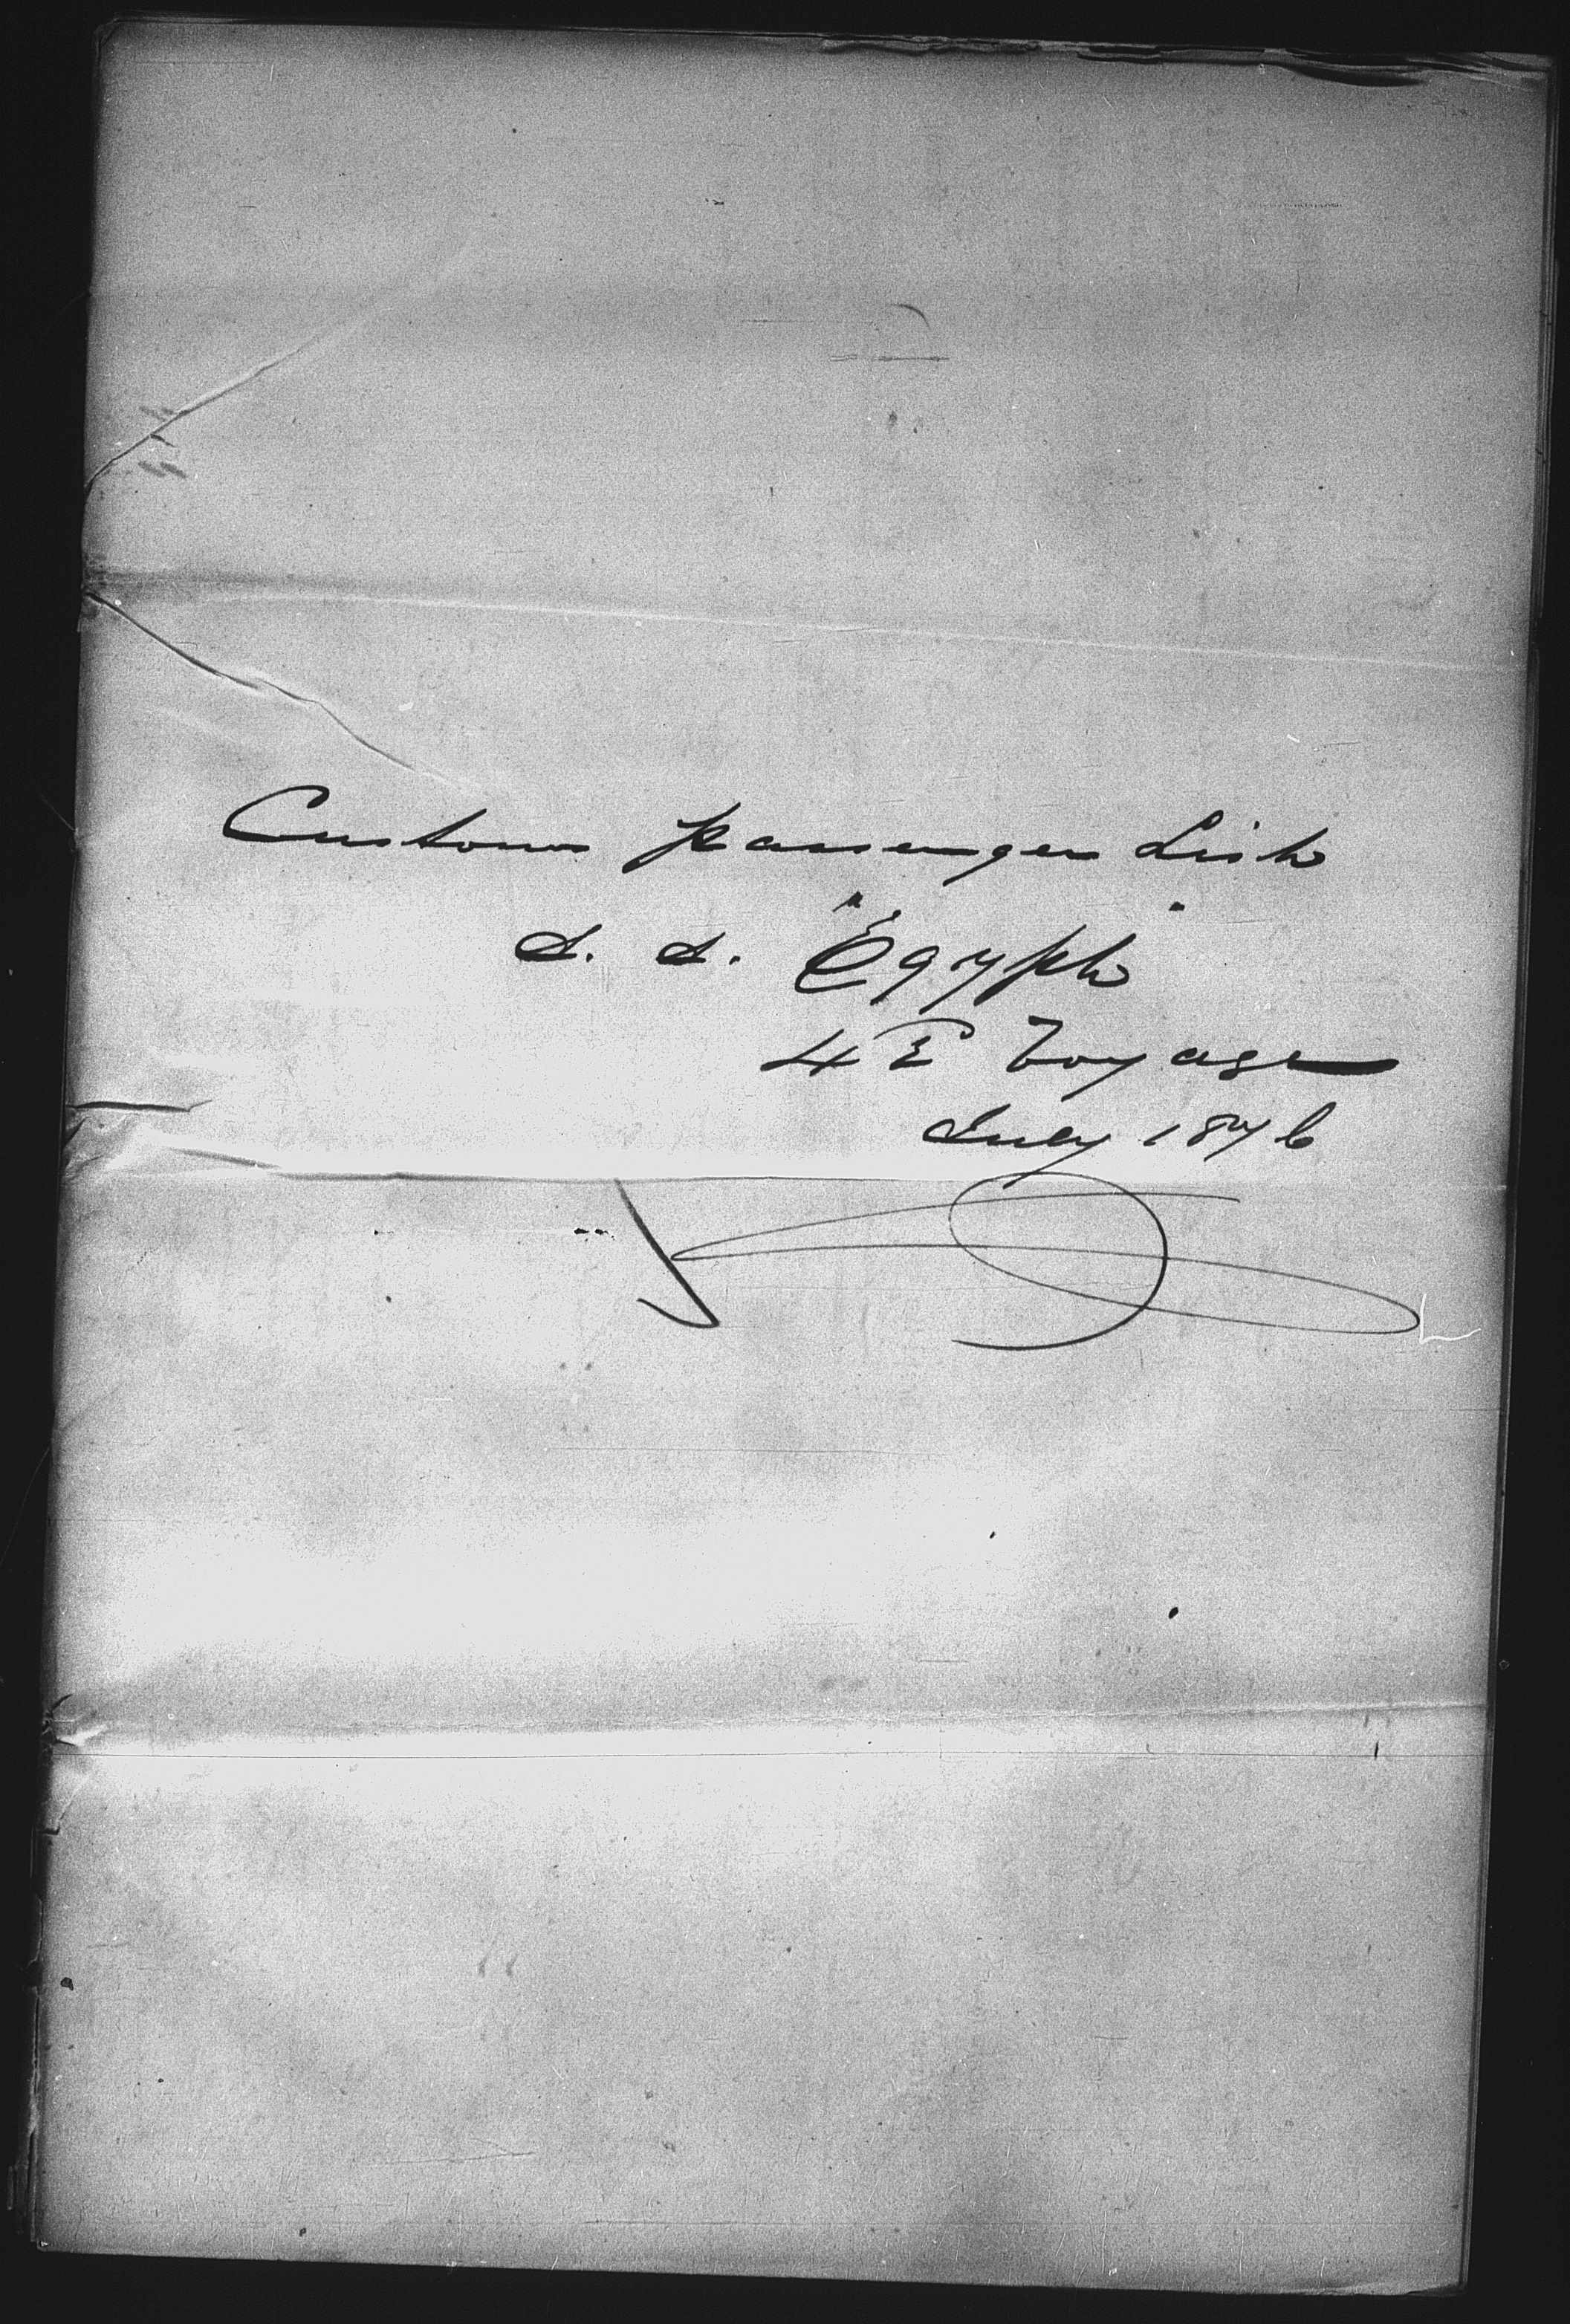 Customs Passenger List
S. S. "Egypt"
4 E Voyage
July 1876